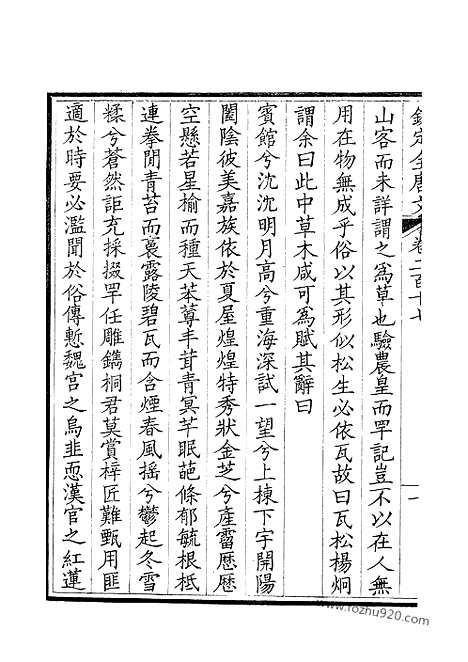 欽定全唐文　卷二百十七　一
山客而未詳謂之為草也驗農皇而罕記豈不以在人無
用在物無成乎俗以其形似松生必依瓦故曰瓦松楊炯
謂余曰此中草木咸可為賦其辭曰
賓館兮沈沈明月高兮重海深試一望兮上棟下宇開陽
闔陰彼美嘉族依於夏屋煌煌特秀狀金芝兮產霤歷歷
空懸若星榆而種天苯䔿丰茸青冥芊眠葩條郁毓根柢
連拳閒青苔而裛露陵碧瓦而含煙春風搖兮鬱起冬雪
糅兮蒼然詎充採掇罕任雕鐫桐君莫賞梓匠難甄用匪
適於時要必濫聞於俗傳慙魏宮之烏韭恧漢宮之紅蓮
www.rozhu920.com